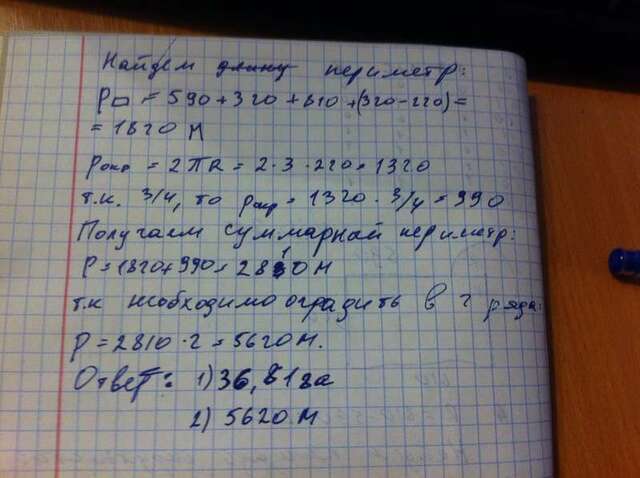 Найдем длину периметр:
P□ = 590+320+610+(320-220)=
= 1620 м
Pокр = 2πR = 2·3·220=1320
т.к. 3/4, то Pокр = 1320·3/4=990
Получаем суммарный периметр:
P=1820+990=2810 м
т.к необходимо оградить в 2 ряда:
P=2810·2=5620 м.
Ответ: 1) 36,81га
2) 5620 м